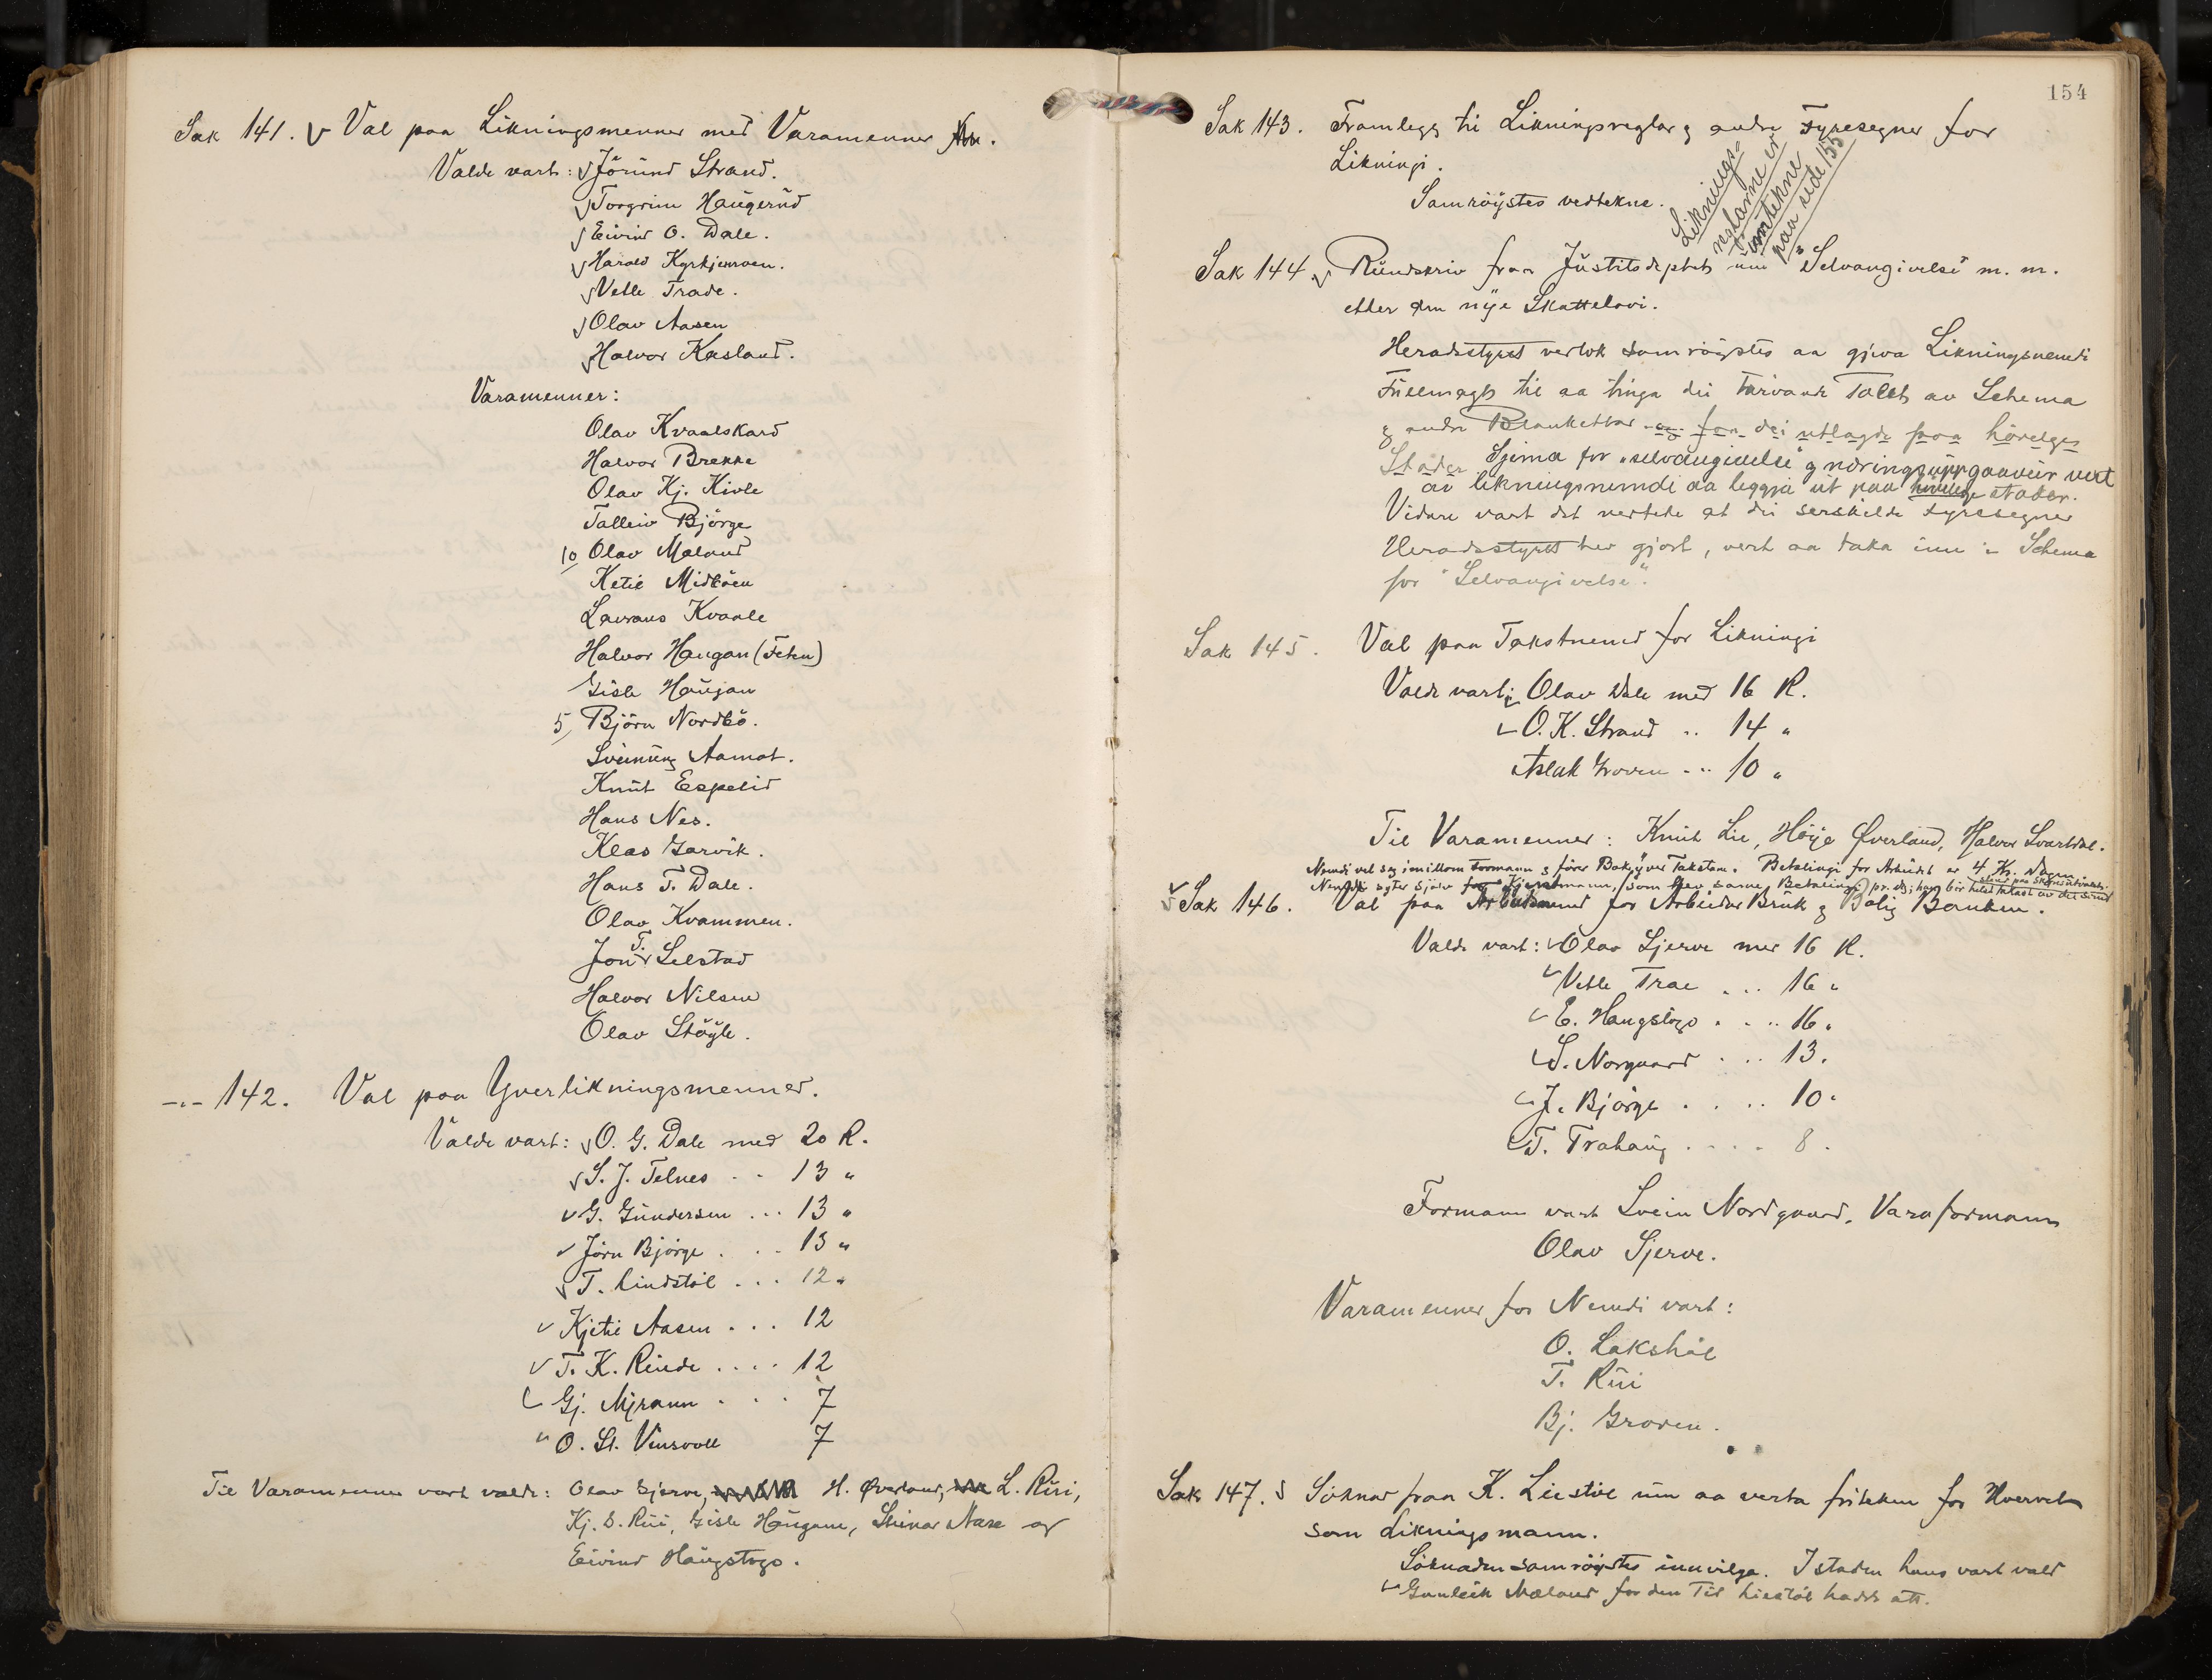 Sak 141. Val paa Likningsmenner med Varamenner
Valde vart: Jörund Strand.
Torgrim Haugerud
Eivind O. Dale.
Harald Kyrkjemoen.
Vetle Trade.
Olav Aasen
Halvor Kasland.
Varamenner:
Olav Kvaalskard
Halvor Brekke
Olav Kj. Kivle
Talleiv Björge
10 Olav Mæland
Ketil Midböen
Lavrans Kvaale
Halvor Haugan (Feten)
Gisle Haugan
5 Björn Nordbö.
Sveinung Aamot.
Knut Espelid
Hans Nes.
Kleas Garvik.
Hans T. Dale.
Olav Kvammen.
Jon T. Selstad
Halvor Nilsen
Olav Stöyle.
-"- 142. Val paa Yverlikningsmenner.
Valde vart: O. G. Dale med 20 R.
S. J. Telnes - - 13 "
G. Gundersen ... 13 "
Jörn Björge . . . 13 "
T. Lindstöl . . . 12 "
Kjetil Aasen . . . 12
T. K. Rinde .... 12
Gj. Myrann . . . 7
O. Sl. Vinsvoll 7
Til Varamenner vart valde: Olav Sjerve, H. Øverland, L. Rui,
Kj. S. Rui, Gisle Haugane, Steinar Næse og
Eivind Haugstogo.
154
Sak 143. Framlegg til Likningsreglar og andre Fyresegner for
Likningi.
Samröystes vedtekne.
Liknings-
reglarne er
inntekne
paa side 155
Sak 144 Rundskriv fraa Justitsdeptet um "Selvangivelse" m. m.
etter den nye Skattelovi.
Heradsstyret vertok samröystes aa gjeva Likningsnemdi
Fullmagt til aa tinga dei turvande Tallet av Schema
og andre Blankettar og faa dei utlagde paa hövelege
Stader Sjema for "selvangivelse" og næringsuppgaavur vert
av likningsnemdi aa leggja ut paa hövelege stader.
Vidare vart det verteke at dei serskilde fyresegner
Heradsstyret hev gjort, vert aa taka inn i Schema
for "Selvangivelse".
Sak 145. Val paa Takstnemd for Likningi
Valde vart: Olav Dale med 16 R.
O. K. Strand .. 14 "
Aslak Groven - .. 10 "
Til Varamenner: Knut Lie, Höye Øverland, Halvor Svartdal.
Nemdi vel seg imillom formann og förer Bok yver Takstane. Betalingi for Arbeidet er 4 Kr. Dagen
Nemdi syter sjölv for Kjendtmann, som hev same Betaling pr. dg; han bör helst takast av dei
Sak 146. Val paa Arbeidsnemd for Arbeidar Bruk og Bolig Banken.
Valde vart: Olav Sjerve mer 16 R.
Vetle Trae ... 16 "
E. Haugstogo . . .. 16 "
S. Norgaard . .. 13.
J. Björge . . .. 10 "
T. Trahaug . . . . 8.
Formann vart Svein Nordgaard, Varaformann
Olav Sjerve.
Varamenner for Nemdi vart:
O. Lakshöl
T. Rui
Bj. Groven.
Sak 147. Söknad fraa K. Liestöl um aa verta friteken for Hvervet
som Likningsmann.
Söknaden samröystes innvilga. I staden hans vart vald
Gunleik Mæland for den Tid Liestöl hadde att.